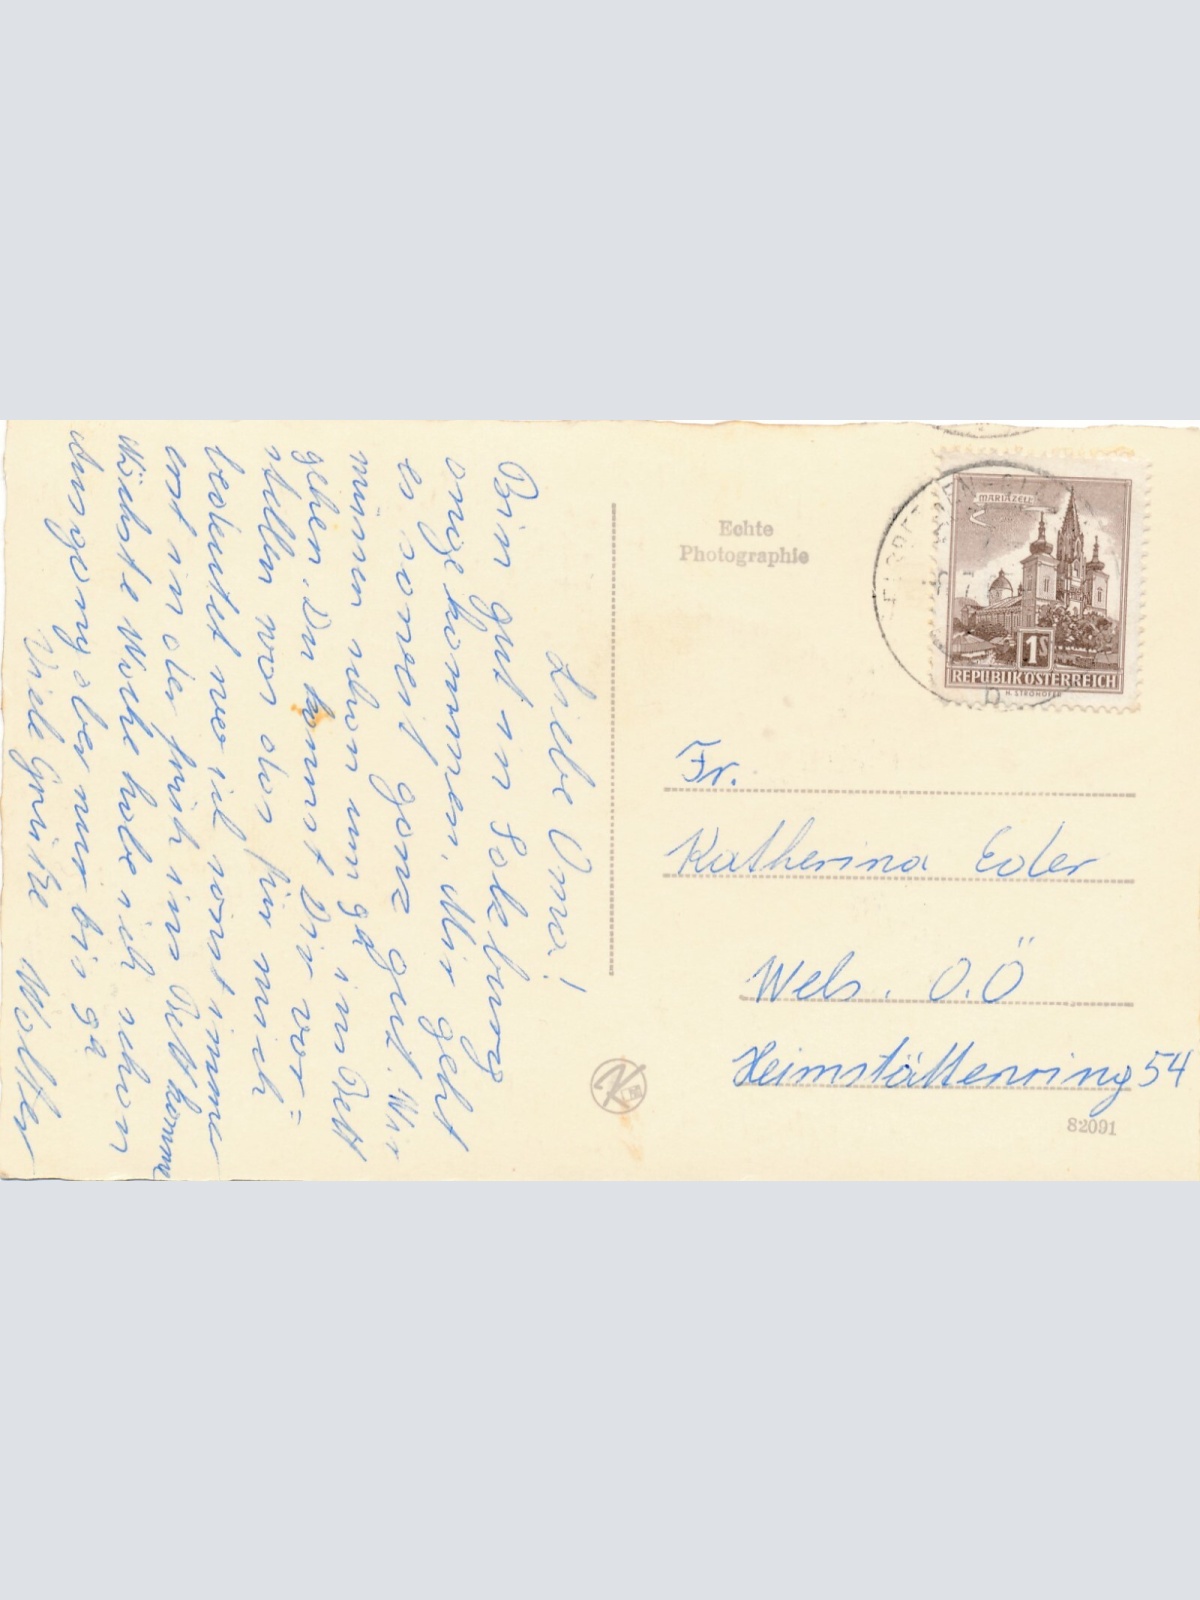 Liebe Oma!
Bin gut in Salzburg
angekommen. Mir geht
es soweit ganz gut. Wir
müssen schon um 9h ins Bett
gehen. Du kannst Dir vor=
stellen was das für mich
bedeutet weil ich sonst immer
erst in der früh ins Bett komme
Nächste Woche habe ich schon
Ausgang aber nur bis 9h
Viele Grüße Walter
Echte
Photographie
MARIAZELL
1S
REPUBLIK ÖSTERREICH
H. STROHOFER
b
Fr.
Katherina Eder
Wels. O.Ö
Heimstättenring 54
82091